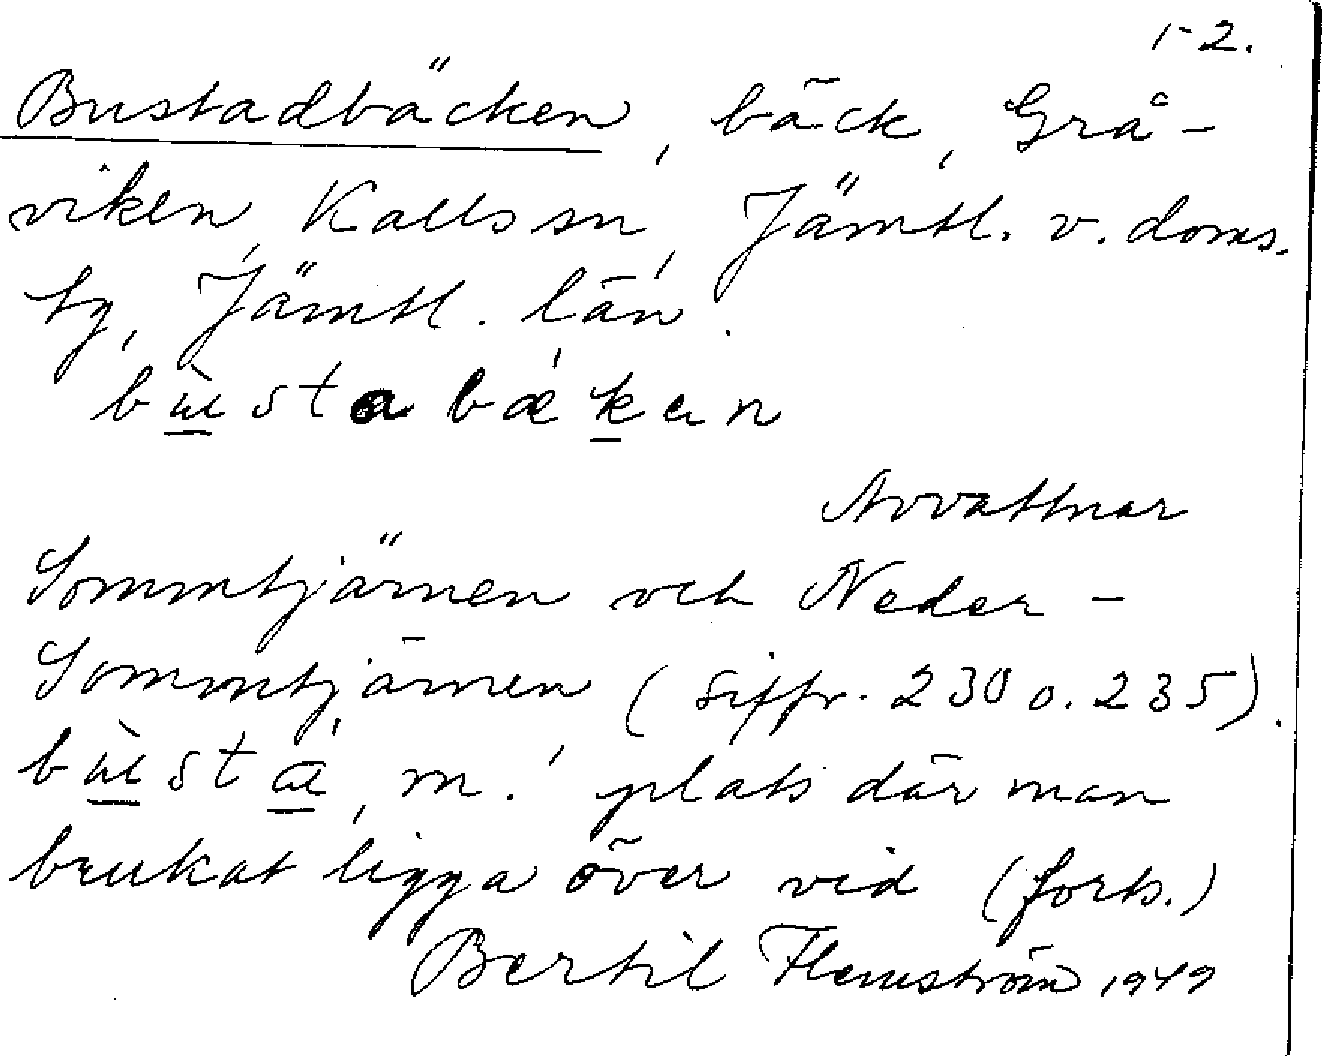 1-2.
Bustadbäcken, bäck, Grå-
viken, Kalls sn, Jämtl. v. doms.
tg, Jämtl. län.
bùstabækan
Avvattnar
Sommtjärnen och Neder-
Sommtjärnen (siffr. 230 o. 235).
bùstá, m. ' plats där man
brukat ligga över vid (forts.)
Bertil Flemström 1949